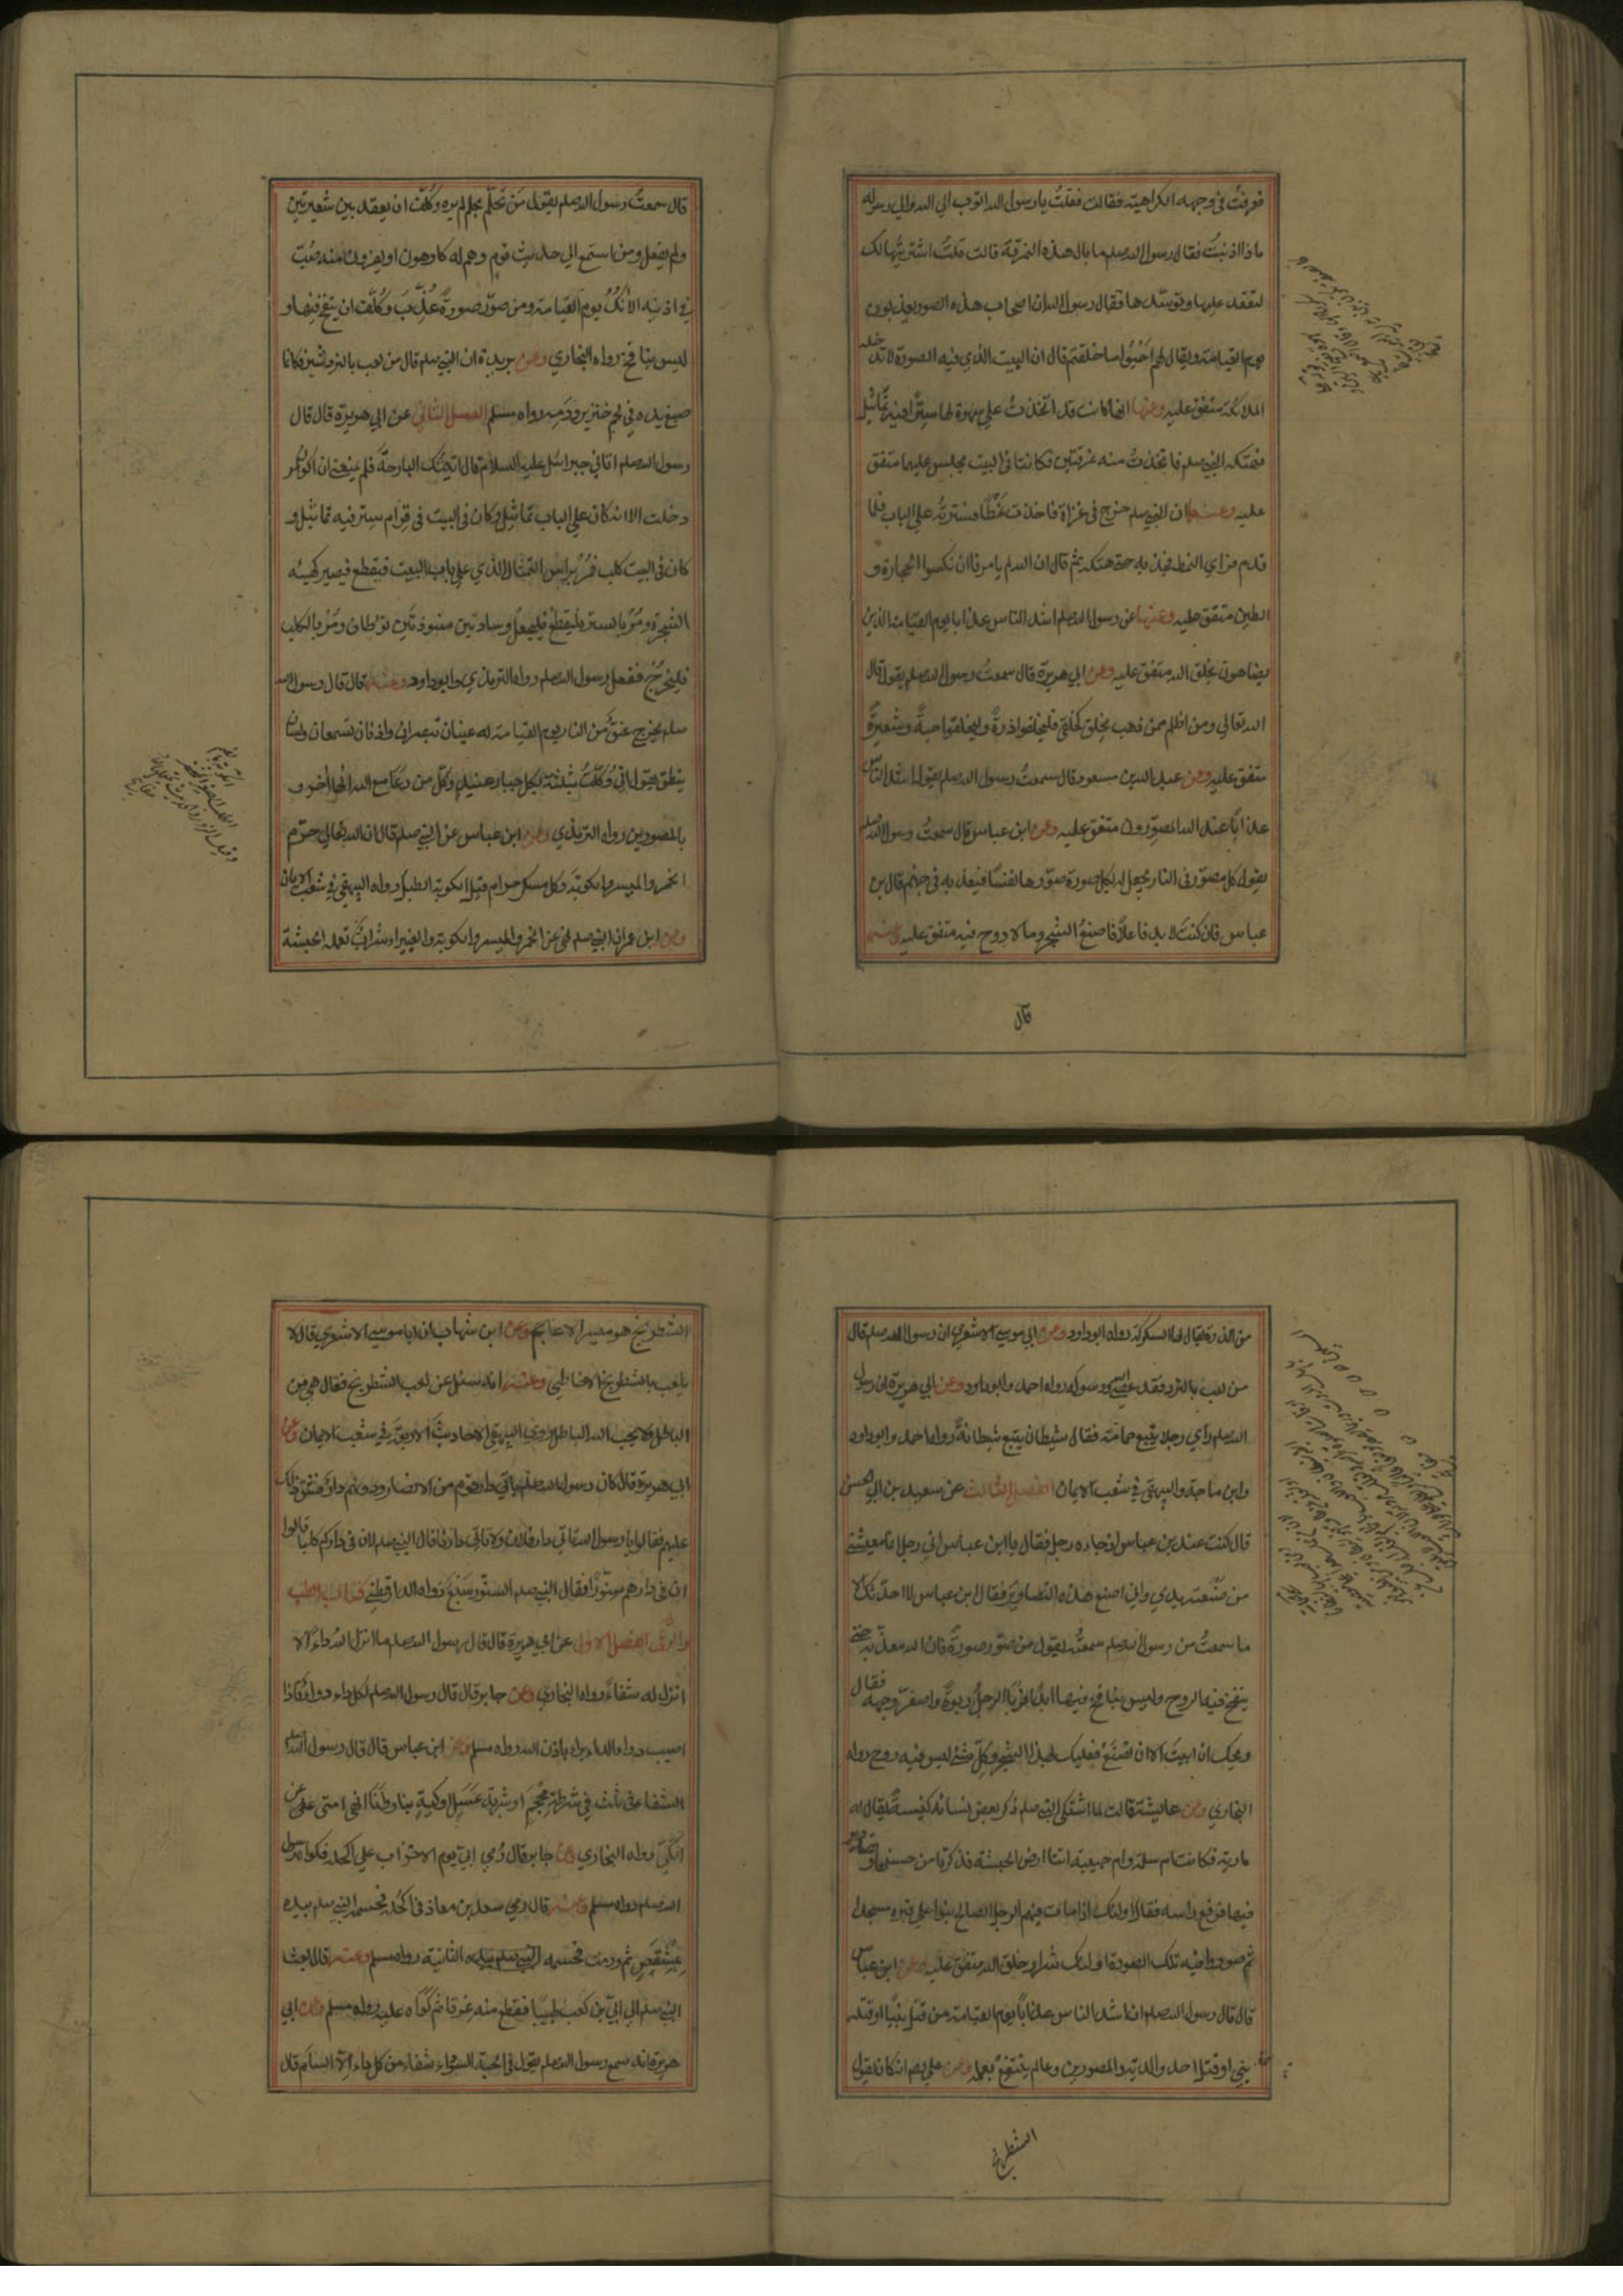 فعرفتُ في وجهه الكراهية فقالت فقلتُ يا رسول الله اتوب الي الله والي رسوله
ماذا اذنبتُ فقال رسول الله صلعم ما بال هذه النمرقة قالت قلتُ اشتريتها لك
لتقعد عليها وتوسّدها فقال رسول الله ان اصحاب هذه الصور يعذبون
يوم القيامة ويقال لهم اَحْيُوا ما خلقتم قال ان البيت الذي فيه الصورة لا تدخله
الملائكة متفق عليه وعنها انها كانت قد اتخذتْ علي سهوة لها سِترًا فيه تماثيل
فهتكه النبي صلعم فاتخذتْ منه نمرقتين فكانتا في البيت يجلس عليهما متفق
عليه وعنها ان النبي صلعم خرج في غزاة فاخذت نَمَطًا فسترته علي الباب فلما
قدم فراي النمط فجذبه حتى هتكه ثم قال ان الله لم يامرنا ان نكسوا الحجارة و
الطين متفق عليه وعنها عن رسول الله صلعم اشد الناس عذابا يوم القيامة الذين
يضاهون بخلق الله متفق عليه وعن ابي هريرة قال سمعتُ رسول الله صلعم يقول قال
الله تعالي ومن اظلم ممن ذهب يخلق كخلقي فليخلقوا ذرةً وليخلقوا حبةً وشعيرةً
متفق عليه وعن عبد الله بن مسعود قال سمعتُ رسول الله صلعم يقول اشد الناس
عذابًا عند الله المصوّرون متفق عليه وعن ابن عباس قال سمعتُ رسول الله صلعم
يقول كل مصوّر في النار يجعل له بكل صورة صوّرها نفسًا فيعذبه في جهنم قال بن
عباس فان كنتَ لا بد فاعلًا فاصنع الشجر وما لا روح فيه متفق عليه وعنه
قال
قال سمعتُ رسول الله صلعم يقول مَن تَحَلّم بحلم لم يره وكُلّف ان يعقد بين شعيرتين
ولم يفعل ومن استمع الي حديث قوم وهم له كارهون او يفرون منه صُبّ
في اذنيه الآنُكُ يوم القيامة ومن صوّر صورةً عُذّبَ وكُلّف ان ينفخ فيها و
ليس بنافخ رواه البخاري وعن بريدة ان النبي صلعم قال من لعب بالنردشير فكانما
صبغ يده في لحم خنزير ودَمِه رواه مسلم الفصل الثاني عن ابي هريرة قال قال
رسول الله صلعم اتاني جبرائيل عليه السلام قال اتيتك البارحة فلم يمنعني ان اكون
دخلت الا انه كان علي الباب تماثيل وكان في البيت في قِرام ستر فيه تماثيل و
كان في البيت كلب فمُرْ برأس التمثال الذي علي باب البيت فيقطع فيصير كهيئة
الشجرة ومُرْ بالستر فليقطع فليجعل وسادتين منبوذتَين توطان ومُرْ بالكلب
فليُخرَجْ ففعل رسول الله صلعم رواه الترمذي وابوداود وعنه قال قال رسول الله
صلعم يخرج عنقٌ من النار يوم القيامة له عينان تبصران واذنان تسمعان ولسان
ينطق يقول اني وُكّلتُ بثلثة بكل جبار عنيد وكل من دعا مع الله الها آخر و
بالمصورين رواه الترمذي وعن ابن عباس عن النبي صلعم قال ان الله تعالي حرّم
الخمر والميسر والكوبة وكل مسكر حرام قيل الكوبة الطبل رواه البيهقي في شعب الايمان
وعن ابن عمر ان النبي صلعم نهي عن الخمر والميسر والكوبة والغبيراء شرابٌ تعمله الحبشة
من الذرة يقال لها السكركة رواه ابوداود وعن ابي موسي الاشعري ان رسول الله صلعم قال
من لعب بالنرد فقد عصي الله ورسوله رواه احمد وابوداود وعن ابي هريرة ان رسول
الله صلعم رأي رجلا يتبع حمامة فقال شيطان يتبع شيطانةً رواه احمد وابوداود
وابن ماجة والبيهقي في شعب الايمان الفصل الثالث عن سعيد بن ابي الحسن
قال كنت عند بن عباس اذ جاءه رجل فقال يا ابن عباس اني رجل انما معيشتي
من صَنْعَة يدي واني اصنع هذه التصاوير فقال ابن عباس لا احدثك الا
ما سمعتُ من رسول الله صلعم سمعتُه يقول من صوّر صورةً فان الله معذبه حتى
ينفخ فيه الروح وليس بنافخ فيها ابدًا فربا الرجل ربوةً واصفرّ وجهه فقال
ويحك ان ابيتَ الا ان تصنعَ فعليك بهذا الشجر وكلّ شئ ليس فيه روح رواه
البخاري وعن عايشة قالت لما اشتكى النبي صلعم ذكر بعض نسائه كنيسة يقال له
مارية وكانت ام سلمة وام حبيبة اتتا ارض الحبشة فذكرتا من حسنها وتصاوير
فيها فرفع راسه فقال اولئك اذا مات فيهم الرجل الصالح بنوا علي قبره مسجدا
ثم صوروا فيه تلك الصورة اولئك شرار خلق الله متفق عليه وعن ابن عباس
قال قال رسول الله صلعم ان اشد الناس عذابًا يوم القيامة من قتل نبيًا او قتله
نبي او قتل احد والديه والمصورين وعالم لم ينتفع بعلمه وعن علي رضه انه كان يقول
الشطرنج
الشطرنج هو ميسر الاعاجم وعن ابن شهاب ان ابا موسي الاشعري قال لا
يلعب بالشطرنج الا خاطئ وعنه انه سئل عن لعب الشطرنج فقال هي من
الباطل ولا يحب الله الباطل روي البيهقي الاحاديث الاربعة في شعب الايمان وعن
ابي هريرة قال كان رسول الله صلعم ياتي دار قوم من الانصار ودونهم دارٌ فشق ذلك
عليهم فقالوا يا رسول الله تاتي دار فلان ولا تاتي دارنا قال النبي صلعم لان في داركم كلبًا قالوا
ان في دارهم سِنّورًا فقال النبي صلعم السنور سَبُعٌ رواه الدارقطني كتاب الطب
والرُّقى الفصل الاول عن ابي هريرة قال قال رسول الله صلعم ما انزل الله داءً الا
انزل له شفاءً رواه البخاري وعن جابر قال قال رسول الله صلعم لكل داء دواء فاذا
اصيب دواء الداء برا باذن الله رواه مسلم وعن ابن عباس قال قال رسول الله صلعم
الشفاء في ثلث في شرطة محْجَم او شربة عَسَلٍ او كيّةٍ بنار وانا انهى امتي عن
الكيّ رواه البخاري وعن جابر قال رُمي ابيّ يوم الاحزاب علي اكحله فكواه رسول
الله صلعم رواه مسلم وعنه قال رُمي سعد بن معاذ في اكحُله فحسمه النبي صلعم بيده
بمِشقَصٍ ثم ورمت فحسمه الثانية رواه مسلم وعنه قال بعث
النبي صلعم الي ابيّ بن كعب طبيبًا فقطع منه عرقا ثم كواه عليه رواه مسلم وعن ابي
هريرة انه سمع رسول الله صلعم يقول في الحبة السوداء شفاء من كل داء الا السام قال